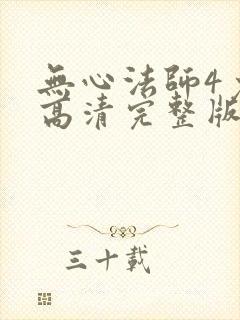 無心法師4
高清完整版
三十載